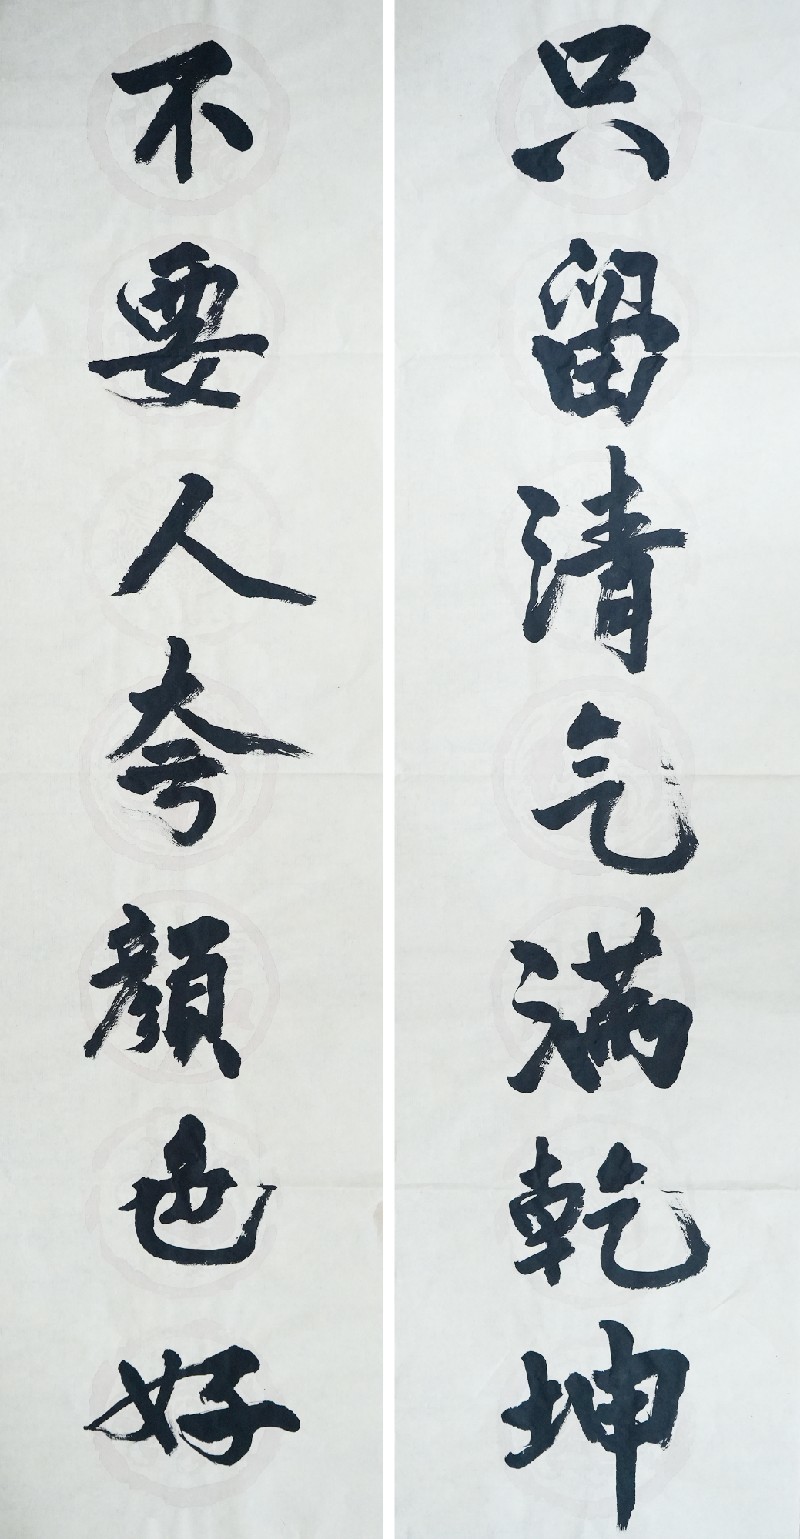 不要人夸顏色好
只留清气满乾坤